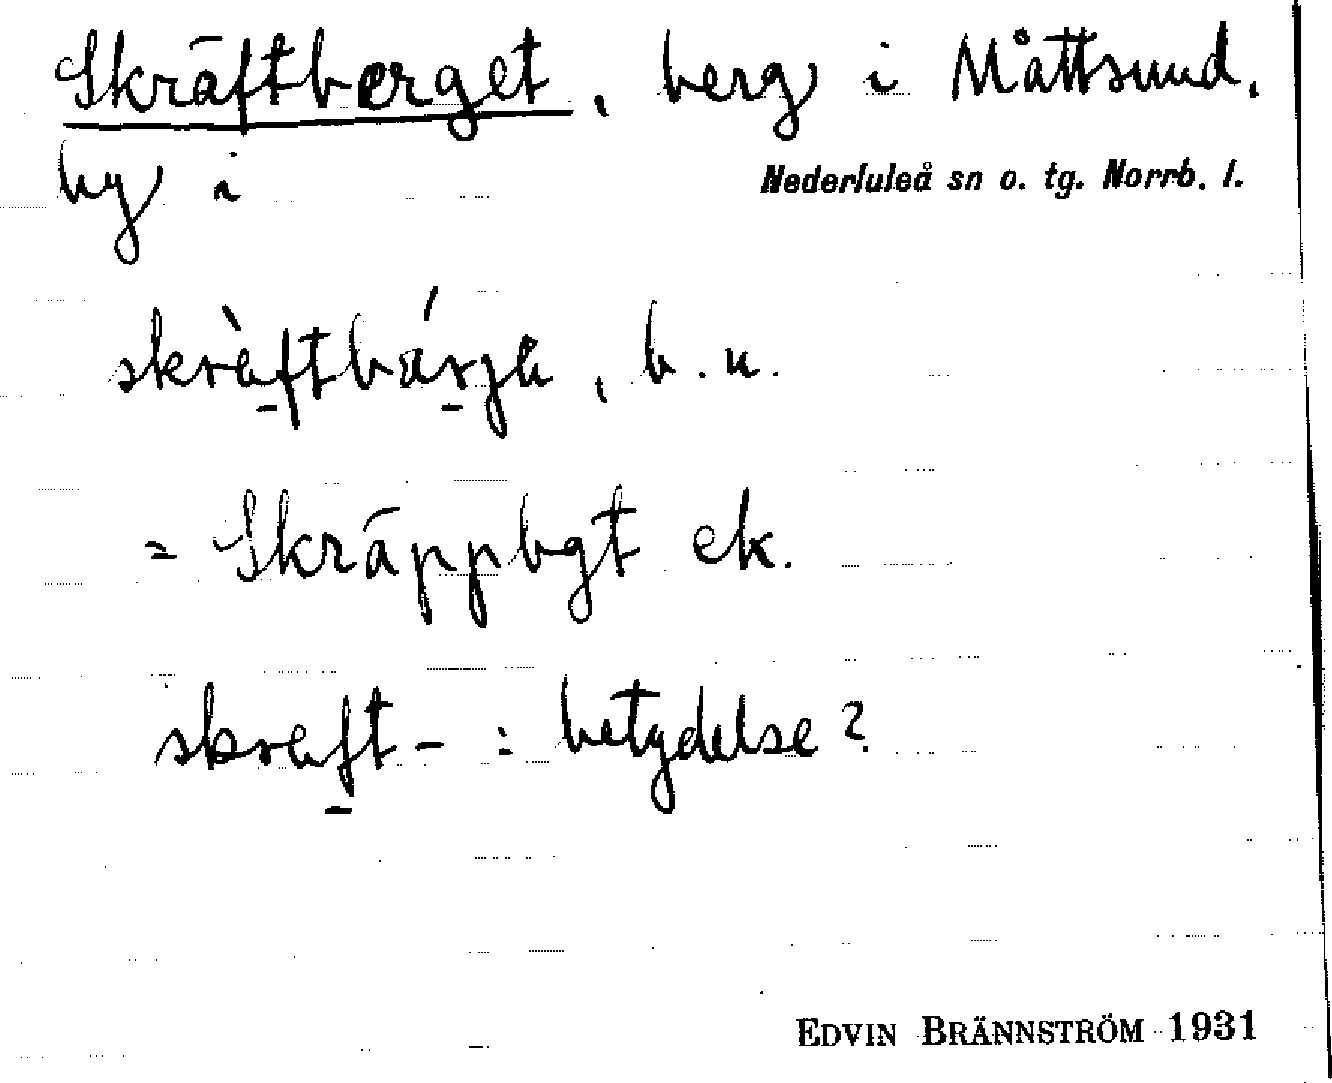 Skräftberget, berg i Måttsund,
by i Nederluleå sn o. tg. Norrb. l.
skràftbárja, b. u.
= Skräppbgt ek.
skraft- : betydelse?
EDVIN BRÄNNSTRÖM 1931